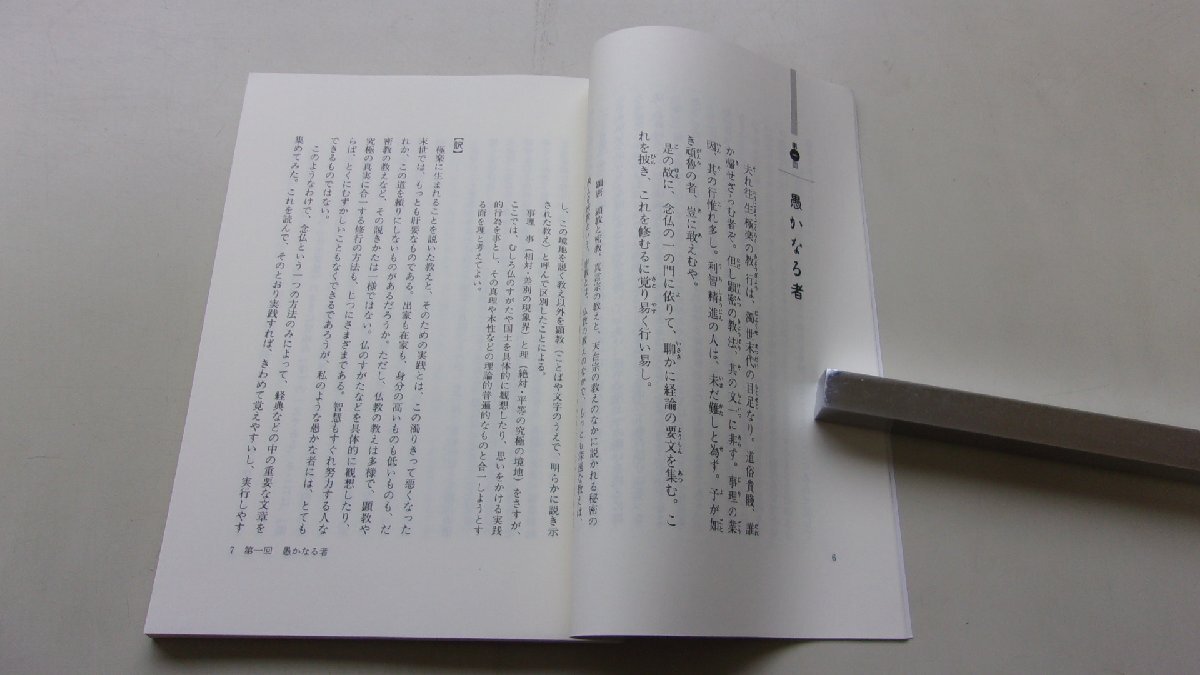 第一回
愚かなる者
夫れ往生極楽の教行は、濁世末代の目足なり。道俗貴賤、誰
か帰せざらむ者ぞ。但し顕密の教法、其の文一に非ず。事理の業
因、其の行惟れ多し。利智精進の人は、未だ難しと為ず。予が如
き頑魯の者、豈に敢えむや。
是の故に、念仏の一の門に依りて、聊かに経論の要文を集む。こ
れを披き、これを修むるに覚り易く行い易し。
顕密 顕教と密教。真言宗の教えと、天台宗の教えのなかに説かれる秘密の
6
し、この境地を説く教え以外を顕教(ことばや文字のうえで、明らかに説き示
された教え)と呼んで区別したことによる。
事理 事(相対・差別の現象界)と理(絶対・平等の究極の境地)をさすが、
ここでは、むしろ仏のすがたや国土を具体的に観想したり、思いをかける実践
的行為を事とし、その真理や本性などの理論的普遍的なものと合一しようとす
る面を理と考えてよい。
【訳】
極楽に生まれることを説いた教えと、そのための実践とは、この濁りきって悪くなった
末世では、もっとも肝要なものである。出家も在家も、身分の高いものも低いものも、だ
れか、この道を頼りにしないものがあるだろうか。ただし、仏教の教えは多様で、顕教や
密教の教えなど、その説きかたは一様ではない。仏のすがたなどを具体的に観想したり、
究極の真実に合一する修行の方法も、じつにさまざまである。智慧もすぐれ努力する人な
らば、とくにむずかしいこともなくできるであろうが、私のような愚かな者には、とても
できるものではない。
このようなわけで、念仏という一つの方法のみによって、経典などの中の重要な文章を
集めてみた。これを読んで、そのとおり実践すれば、きわめて覚えやすいし、実行しやす
7 第一回 愚かなる者